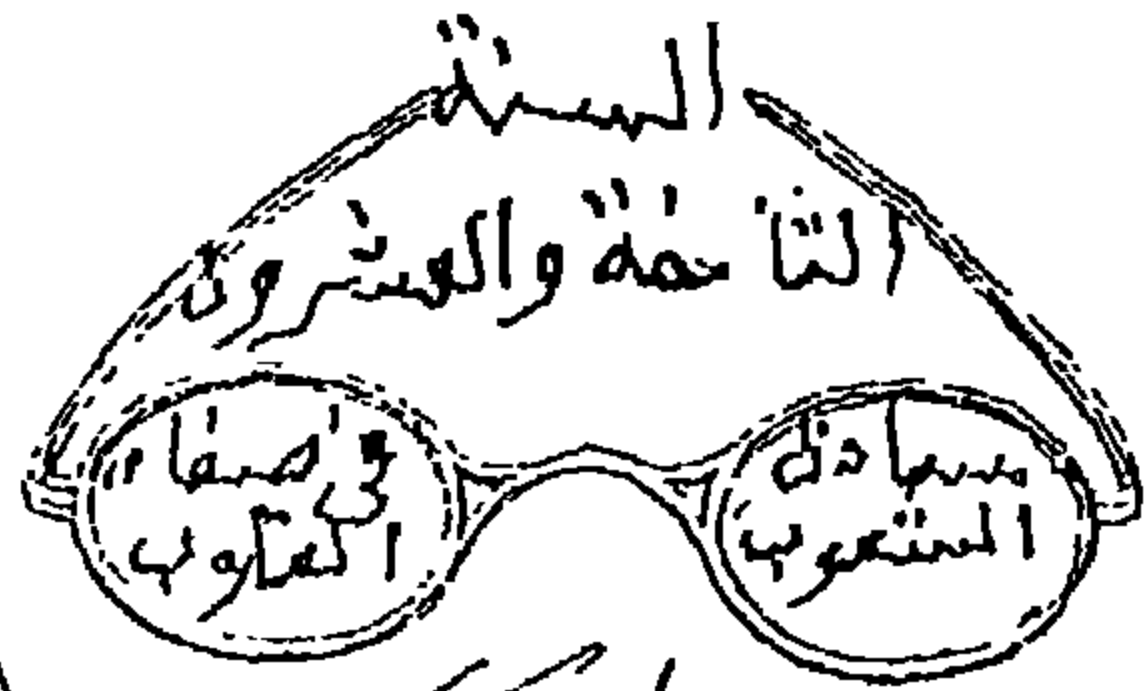 السنة
الثامنة والعشرون
سعادة
الشعوب
في صفاء
القلوب